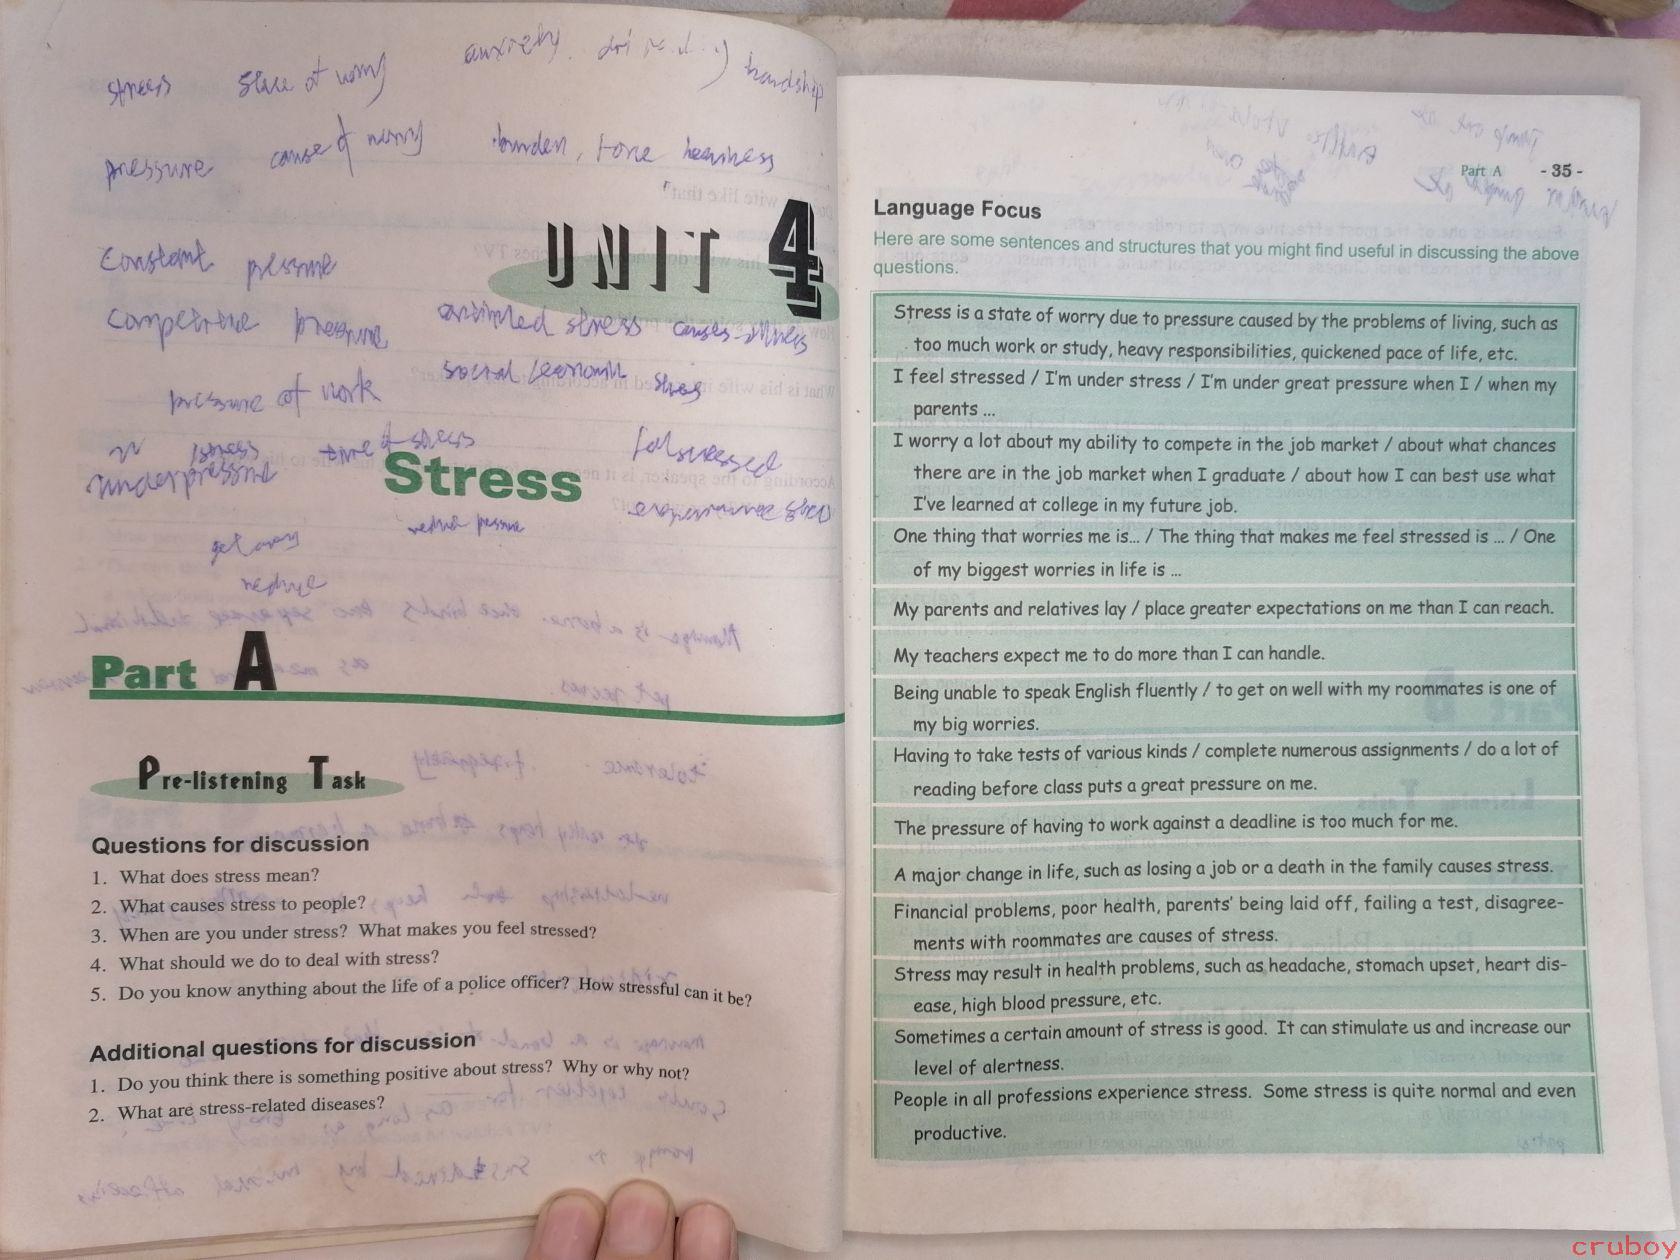 stress state of worry anxiety hardship
pressure cause of worry burden, heaviness
constant pressure
UNIT 4
competitive pressure stress causes illness
pressure of work
stress
under pressure
Stress
get away
reduce
Part A
Pre-listening Task
Questions for discussion
1. What does stress mean?
2. What causes stress to people?
3. When are you under stress? What makes you feel stressed?
4. What should we do to deal with stress?
5. Do you know anything about the life of a police officer? How stressful can it be?
Additional questions for discussion
1. Do you think there is something positive about stress? Why or why not?
2. What are stress-related diseases?
Part A - 35 -
Language Focus
Here are some sentences and structures that you might find useful in discussing the above
questions.
Stress is a state of worry due to pressure caused by the problems of living, such as
too much work or study, heavy responsibilities, quickened pace of life, etc.
I feel stressed / I'm under stress / I'm under great pressure when I / when my
parents ...
I worry a lot about my ability to compete in the job market / about what chances
there are in the job market when I graduate / about how I can best use what
I've learned at college in my future job.
One thing that worries me is... / The thing that makes me feel stressed is ... / One
of my biggest worries in life is ...
My parents and relatives lay / place greater expectations on me than I can reach.
My teachers expect me to do more than I can handle.
Being unable to speak English fluently / to get on well with my roommates is one of
my big worries.
Having to take tests of various kinds / complete numerous assignments / do a lot of
reading before class puts a great pressure on me.
The pressure of having to work against a deadline is too much for me.
A major change in life, such as losing a job or a death in the family causes stress.
Financial problems, poor health, parents' being laid off, failing a test, disagree-
ments with roommates are causes of stress.
Stress may result in health problems, such as headache, stomach upset, heart dis-
ease, high blood pressure, etc.
Sometimes a certain amount of stress is good. It can stimulate us and increase our
level of alertness.
People in all professions experience stress. Some stress is quite normal and even
productive.
cruboy